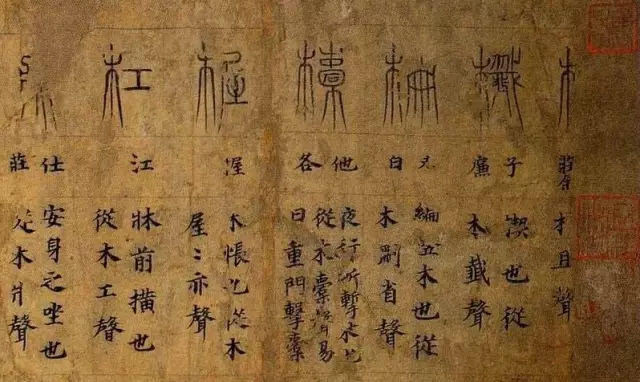 莊余
木且聲
櫼
子廉
楔也從
木韱聲
柵
白
編立木也從
木刪省聲
㯱
他各
夜行所擊木也
從木橐聲易
曰重門擊㯱
楃
渥
木帳也從木
屋〻亦聲
杠
江
牀前橫也
從木工聲
仕莊
安身之坐也
從木爿聲